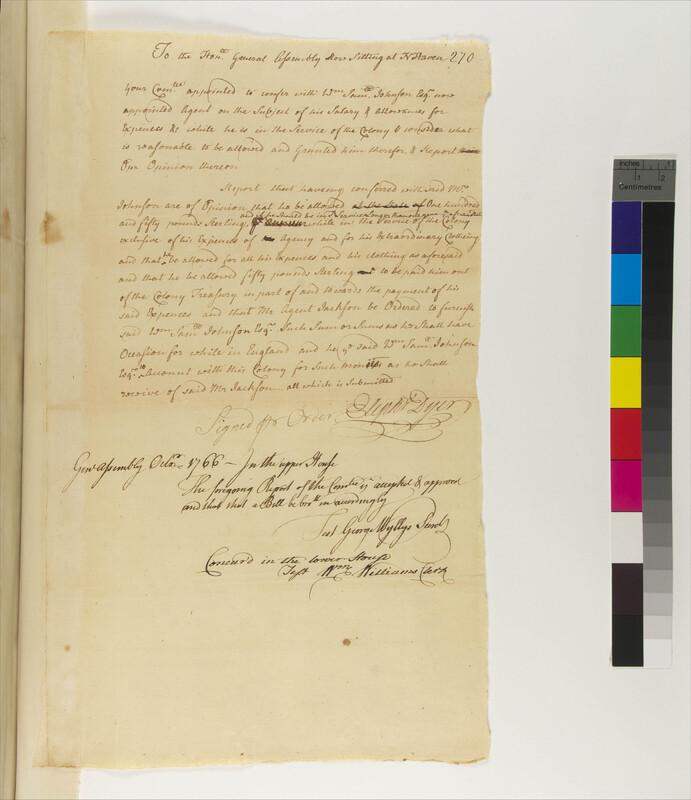 To the Honble General Assembly Now Sitting at N Haven 270
Your Comtee appointed to confer with Wm Saml Johnson Esqr now
appointed Agent on the Subject of his Salary & allowances for
Expences &c while he is in the Service of the Colony & consider what
is reasonable to be allowed and Granted him therefor & Report
Our Opinion thereon
Report that haveing conferred with said Mr
Johnson are of Opinion that he be allowed at the Rate of One hundred
and if he should be in sd Service longer than one year
and fifty pounds Sterling while in the Service of the Colony
exclusive of his Expences of Agency and for his Extraordinary Clothing
and that he be allowed for all his Expences and his clothing as aforesaid
and that he be allowed fifty pounds Sterling to be paid him out
of the Colony Treasury in part of and towards the payment of his
said Expences and that Mr Agent Jackson be Ordered to furnish
said Wm Saml Johnson Esqr Such Sum or Sums as he Shall have
Occasion for while in England and he ye said Wm Saml Johnson
Esqr to Account with this Colony for Such monies as he Shall
receive of said Mr Jackson all which is Submitted
Signed pr Order Elipht Dyer
Genl Assembly Octobr 1766 – In the upper House
The foregoing Report of the Comtee is accepted & approved
and that a Bill be brot in accordingly
Test George Wyllys Secrety
Concurd in the lower House
Test Wm Williams Clerk
inches 1 2
Centimetres